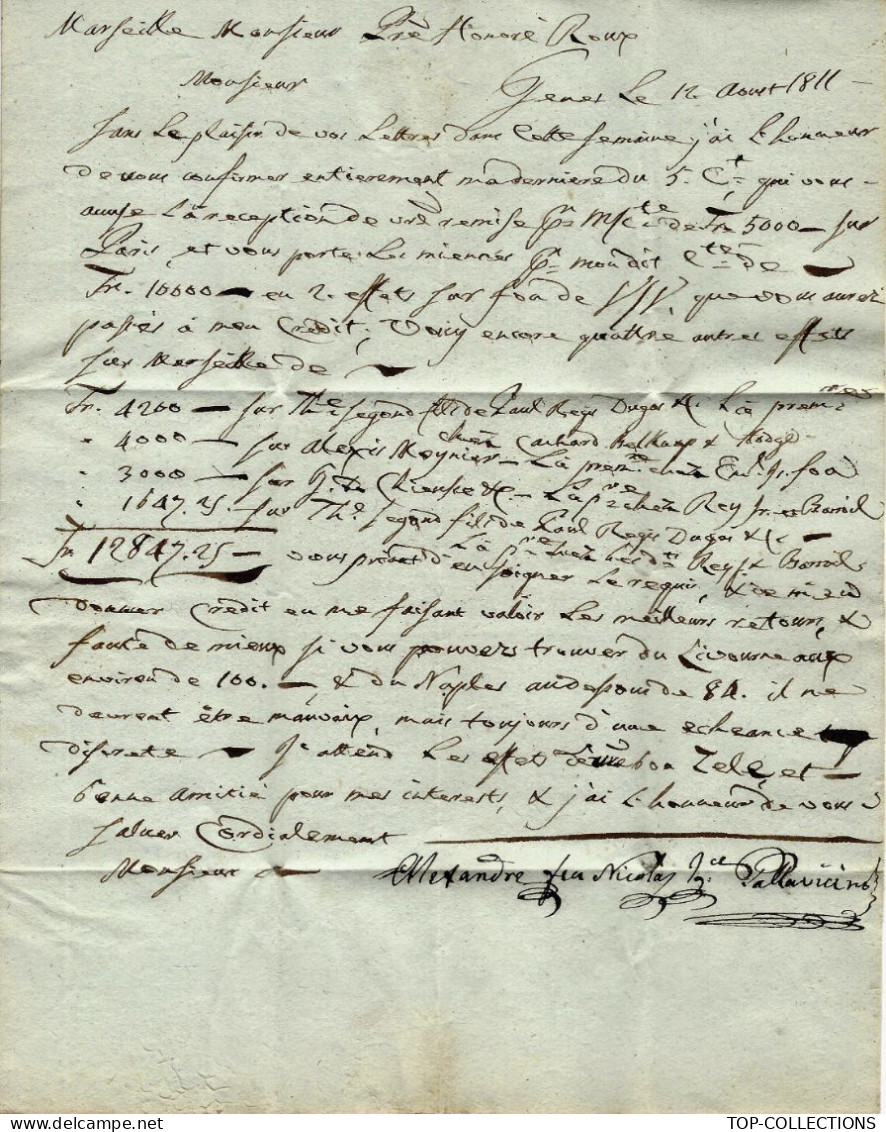 Marseille Monsieur Pre Honoré Roux
Monsieur Genes Le 12 Aoust 1811
Sans Le plaisir de vos Lettres dans Cette Semaine j'ai L'honneur
de vous Confirmer entierement ma derniere du 5. Ct. qui vous
accuse La reception de vre remise pr. M/Cte. de Fr. 5000 — sur
Paris, et vous porte Les miennes pr. mondit Cte. de
Fr. 10000 — en 2. effets sur que vous aurez
passés à mon Credit; Voicy encore quattre autres effets
sur Marseille de
Fr. 4200 — sur The. Segond fils de Paul Regis Dugas &C. La premre
" 4000 — sur Alexis Meynier — La prem. chez
chez Rolland &
" 3000 — sur — La pre. chez Rey Jr. et
" 1647.25. sur The. Segond fils de Paul Regis Dugas &C. —
Fr 12847.25 — vous priant d'en soigner Le requis, & de m'en
La pre chez Les dts Rey &
donner Credit en me faisant valoir Les meilleurs retours, &
faute de mieux si vous pouvez trouver du Livourne aux
environ de 100. —, & du Naples au dessous de 84. il ne
devront être mauvaix, mais toujours d'une echeance
discrete — J'attend Les effets de vre bon Zele, et
bonne amitié pour mes interests, & j'ai L'honneur de vous
saluer Cordialement
Monsieur Alexandre feu Nicolas Pallavicino
TOP-COLLECTIONS